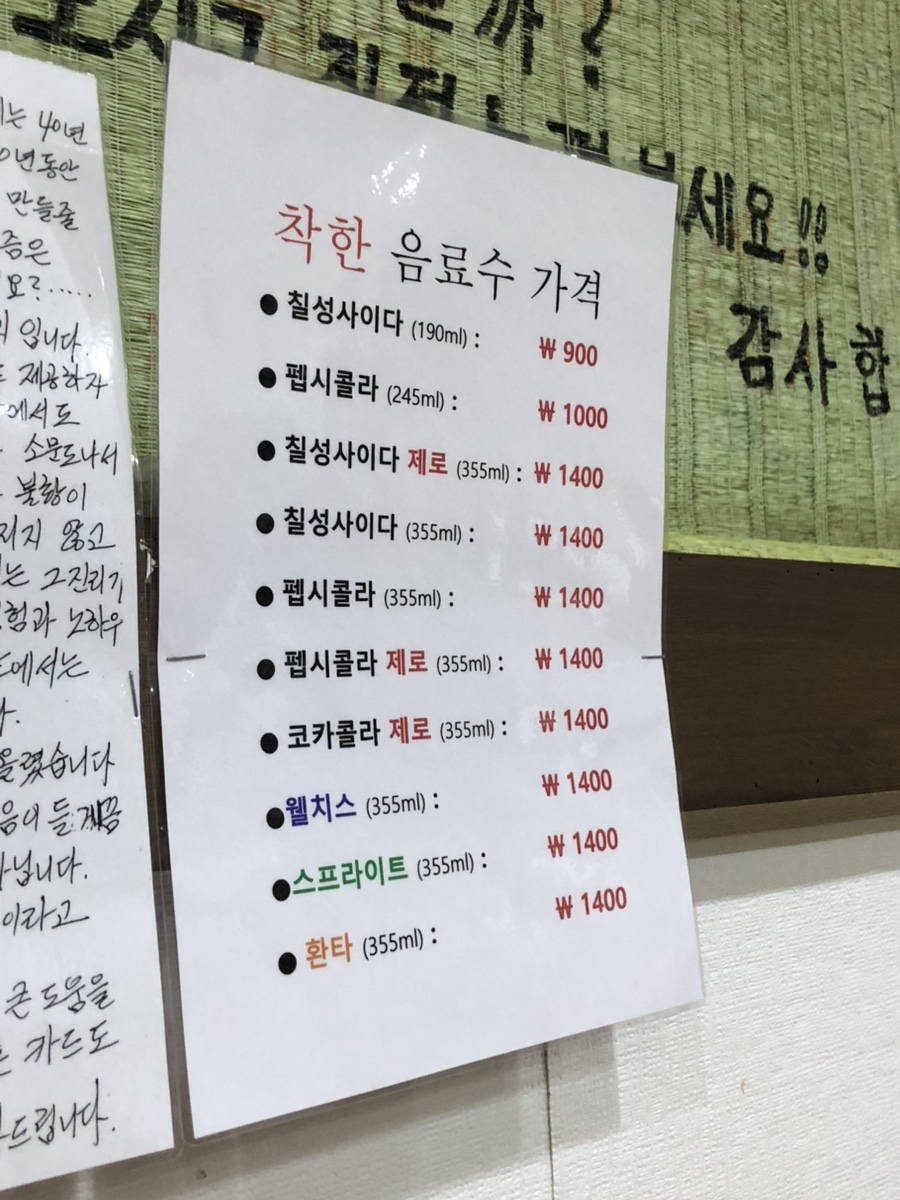 세요!!
감사합
착한 음료수 가격
● 칠성사이다 (190ml) : ₩ 900
● 펩시콜라 (245ml) : ₩ 1000
● 칠성사이다 제로 (355ml) : ₩ 1400
● 칠성사이다 (355ml) : ₩ 1400
● 펩시콜라 (355ml) : ₩ 1400
● 펩시콜라 제로 (355ml) : ₩ 1400
● 코카콜라 제로 (355ml) : ₩ 1400
● 웰치스 (355ml) : ₩ 1400
● 스프라이트 (355ml) : ₩ 1400
● 환타 (355ml) : ₩ 1400
는 40년
0년동안
만들줄
즘은
요?.....
입니다.
제공하자
에서도
소문도나서
불황이
지지 않고
는 그진리기
험과 노하우
에서는
다.
올렸습니다
음이 들게끔
아닙니다.
이라고
큰 도움을
카드도
드립니다.